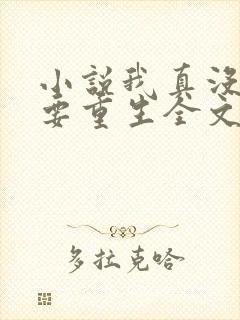 小说我真没
要重生全文
多拉克哈